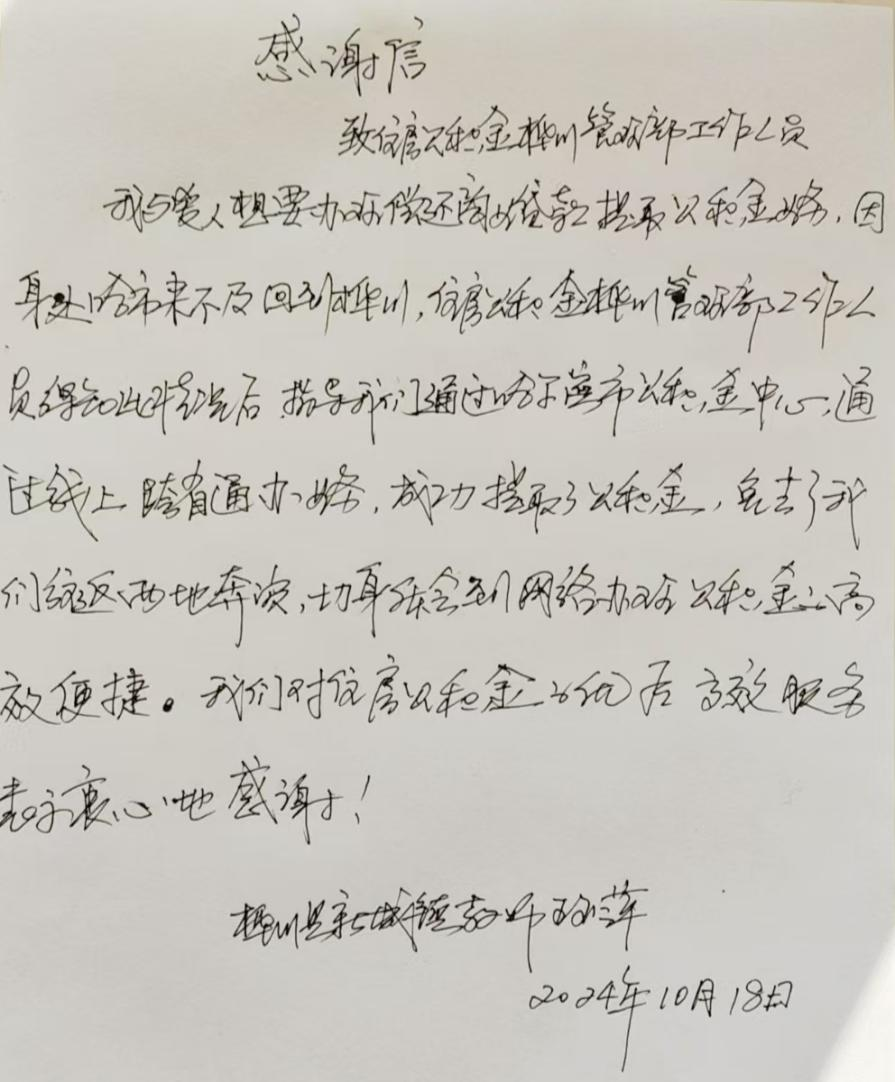 感谢信
致住房公积金桦川管理部工作人员
我与爱人想要办理偿还商业贷款提取公积金业务,因
身处哈市来不及回到桦川,住房公积金桦川管理部工作人
员得知此种情况后 指导我们通过哈尔滨市公积金中心,通
过线上 跨省通办业务,成功提取了公积金,免去了我
们往返两地奔波,切身体会到网络办理公积金之高
效便捷。我们对住房公积金的优质高效服务
表示衷心地感谢!
桦川县新城镇教师 萍
2024年10月18日